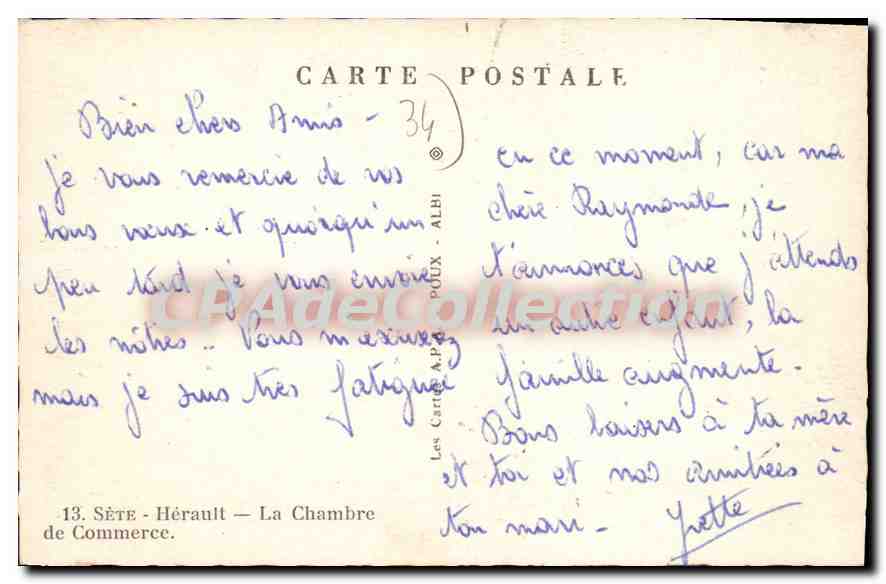 CARTE POSTALE
34
Bien chers Amis -
je vous remercie de vos
bons vœux et quoiqu'un
peu tard je vous envoie
les nôtres.. Vous m'excuserez
mais je suis très fatiguée
en ce moment, car ma
chère Raymonde, je
t'annonces que j'attends
un autre enfant, la
famille augmente.
Bons baisers à ta mère
et toi et nos amitiées à
ton mari - Yvette
Les Cartes A.P. POUX - ALBI
13. SÈTE - Hérault — La Chambre
de Commerce.
CPAdeCollection.